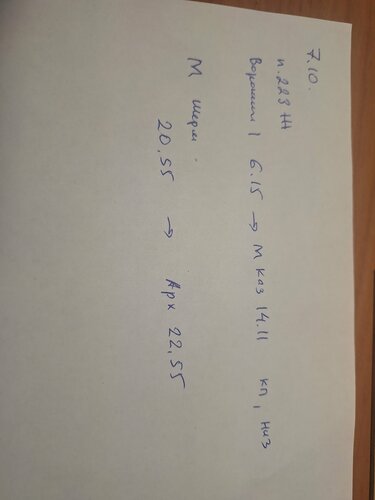 7.10.
п. 223 Ж
Воронеж 1 6.15 → М каз 14.11 кп, низ
М шерм.
20.55 → Арх 22.55